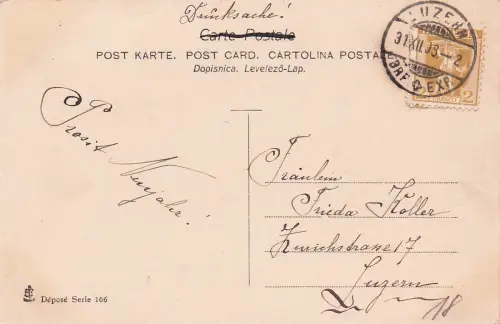 Drucksache!
Carte Postale
POST KARTE. POST CARD. CARTOLINA POSTALE
Dopisnica. Levelező-Lap.
LUZERN
31.XII.03.-2
BRF. EXP.
2
Prosit Neujahr!
Fräulein
Frieda Koller
Zürichstrasse 17
Luzern
18
Déposé Serie 106